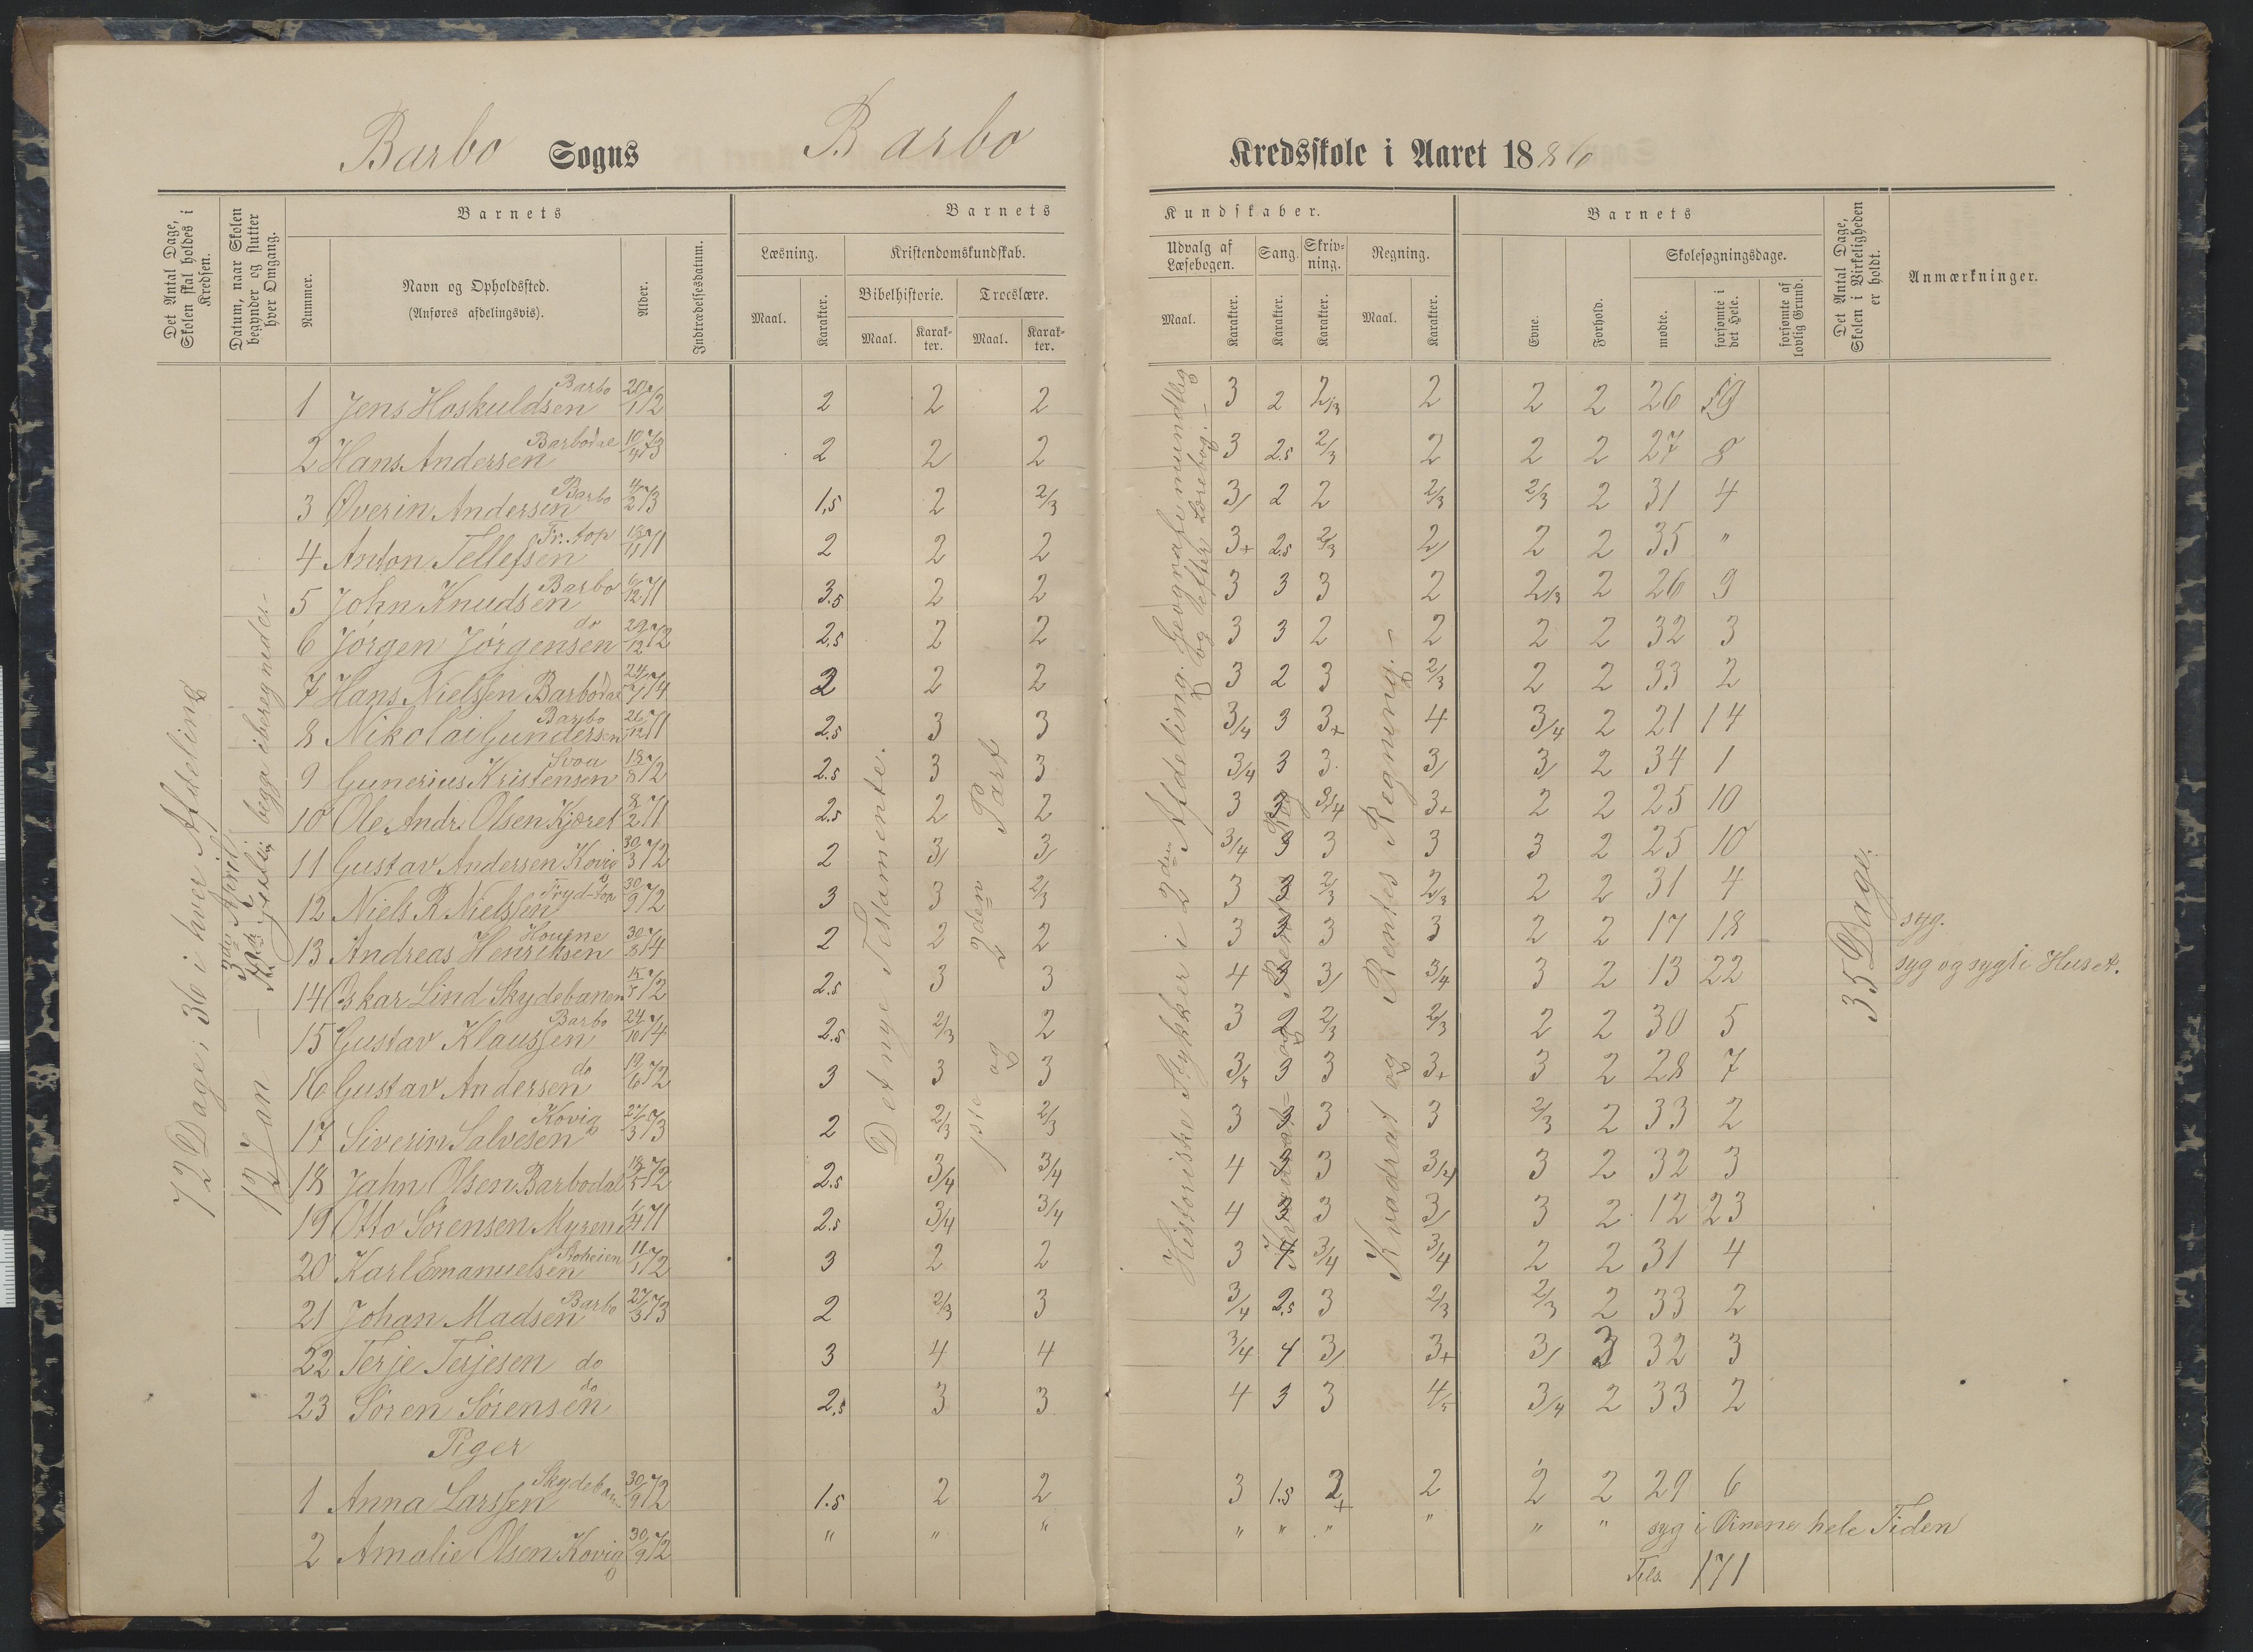 Barbo Sogns Barbo Kredsskole i Aaret 1886
Det Antal Dage, Skolen skal holdes i Kredsen.
Datum, naar Skolen begynder og slutter hver Omgang.
Barnets
Nummer.
Navn og Opholdssted.
(Anføres afdelingsvis).
Alder.
Indtrædelsesdatum.
Barnets Kundskaber.
Læsning.
Maal.
Karakter.
Kristendomskundskab.
Bibelhistorie.
Maal.
Karakter.
Troeslære.
Maal.
Karakter.
Udvalg af Læsebogen.
Maal.
Karakter.
Sang.
Karakter.
Skrivning.
Karakter.
Regning.
Maal.
Karakter.
Barnets
Evne.
Forhold.
Skolesøgningsdage.
mødte.
forsømte i det Hele.
forsømte af lovlig Grund.
Det Antal Dage, Skolen i Virkeligheden er holdt.
Anmærkninger.
72 Dage; 36 i hver Afdeling
12 Jan — begge iberegnede.-
3die April
Det nye Testamente.
1ste og 2den Part
Historiske Stykker i 2den Afdeling. Geografi mundtlig og efter Lærebog. -
Kvadrat og Rentes Regning. -
35 Dage.
1 Jens Hoskuldsen Barbo 20/1 72 2 2 2 3 2 2/3 2 2 2 26 9
2 Hans Andersen Barbodal 10/4 73 2 2 2 3 2.5 2/3 2 2 2 27 8
3 Øverin Andersen Barbo 4/2 73 1,5 2 2/3 3/ 2 2 2/3 2/3 2 31 4
4 Anton Tellefsen Fr. top 18/11 71 2 2 2 3+ 2.5 2/3 2/ 2 2 35 "
5 John Knudsen Barbo 6/12 71 3.5 2 2 3 3 3 2 2/3 2 26 9
6 Jørgen Jørgensen do 29/12 72 2.5 2 2 3 3 2 2 2 2 32 3
7 Hans Nielssen Barbodal 24/1 74 2 2 2 3 2 3 2/3 2 2 33 2
8 Nikolai Gundersen Barbo 26/12 71 2.5 3 3 3/4 3 3+ 4 3/4 2 21 14
9 Gunerius Kristensen 18/8 72 2.5 3 3 3/4 3 3 3/ 3/ 2 34 1
10 Ole Andr. Olsen Kjæret 8/2 71 2.5 2 2 3 3/4 3+ 2 2 25 10
11 Gustav Andersen Kovig 30/3 72 2 3/ 3/ 3/4 3 3 3 3 2 25 10
12 Niels R Nielssen Fryd-top 30/9 72 3 3 2/3 3 3 2/3 2/3 2 2 31 4
13 Andreas Henriksen 30/8 74 2 2 2 3 3 3 3 2 2 17 18 syg.
14 Oskar Lind Skydebanen 15/5 72 2.5 3 3 4 3 3/ 3/4 3 2 13 22 syg og sygt i Huset.
15 Gustav Klaussen Barbo 24/10 74 2.5 2/3 2 3 2 2/3 2/3 2 2 30 5
16 Gustav Andersen do 19/6 72 3 3 3 3/4 3 3 3+ 3 2 28 7
17 Siverin Salvesen Kovig 27/3 73 2 2/3 2/3 3 3 3 3 2/3 2 33 2
18 Jahn Olsen Barbodal 18/5 72 2.5 3/4 3/4 4 3 3 3/4 3 2 32 3
19 Otto Sørensen Myrene 6/4 71 2.5 3/4 3/4 4 3 3 3/ 3 2 12 23
20 Karl Emanuelsen 11/1 72 3 2 2 3 4 3/4 3/4 2 2 31 4
21 Johan Madsen Barbo 27/3 73 2 2/3 3 3/4 2.5 3 2/3 2/3 2 33 2
22 Terje Terjesen do 3 4 4 3/4 4 3/ 3+ 3/ 3 32 3
23 Søren Sørensen do 2.5 3 3 4 3 3 4/5 3/4 2 33 2
Piger
1 Anna Larssen Skydeban 30/9 72 1.5 2 2 3 1.5 2+ 2 2 2 29 6
2 Amalie Olsen Kovig 30/9 72 " " " " " " " " " syg i Øinene hele Tiden
Tils. 171